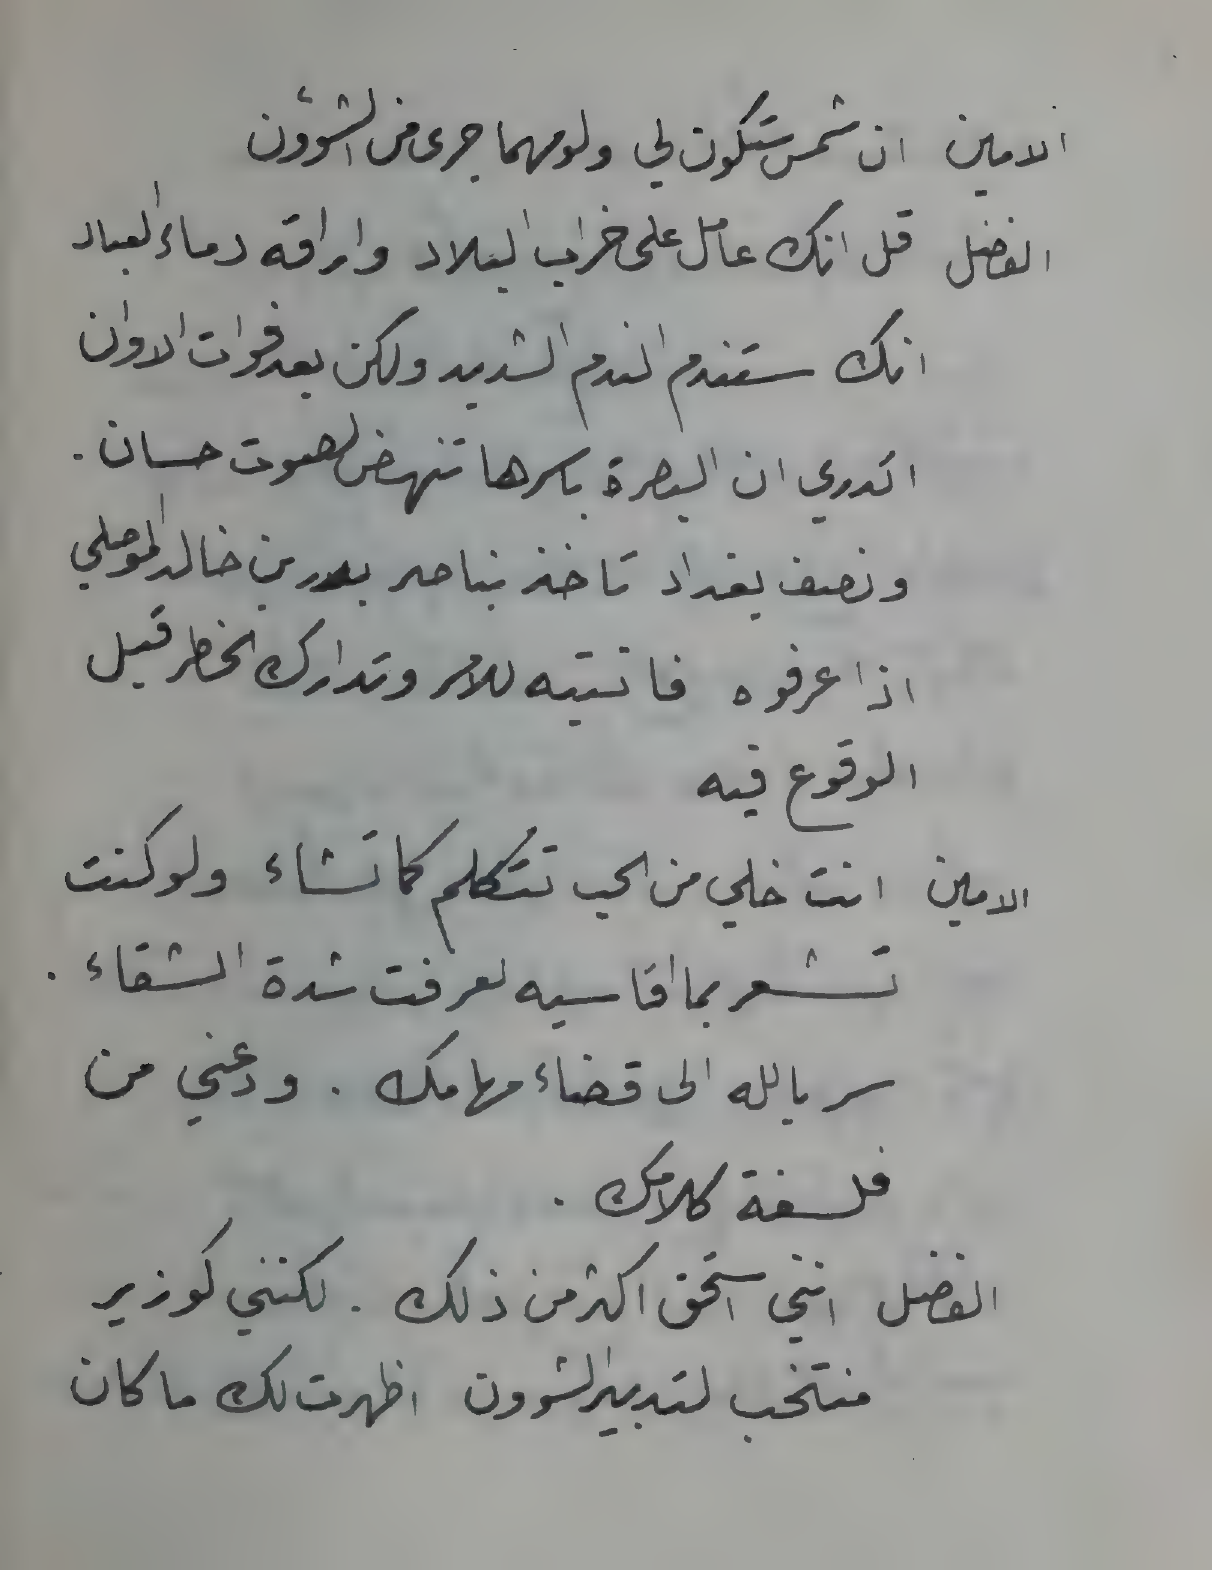 الامين ان شمس ستكون لي ولو مهما جرى من الشؤون
الفضل قل انك عامل على خراب البلاد واراقة دماء العباد
انك ستندم الندم الشديد ولكن بعد فوات الاوان
اتدري ان البصرة باسرها تنهض لصوت حسان .
ونصف بغداد تاخذ بناصر بدر بن خالد الموصلي
اذا عرفوه فانتبه للامر وتدارك الخطر قبل
الوقوع فيه
الامين انت خلي من الحب تتكلم كما تشاء ولو كنت
تشعر بما اقاسيه لعرفت شدة الشقاء .
سر بالله الى قضاء مهامك . ودعني من
فلسفة كلامك .
الفضل انني استحق اكثر من ذلك . لكنني كوزير
منتخب لتدبير الشوون اظهرت لك ما كان